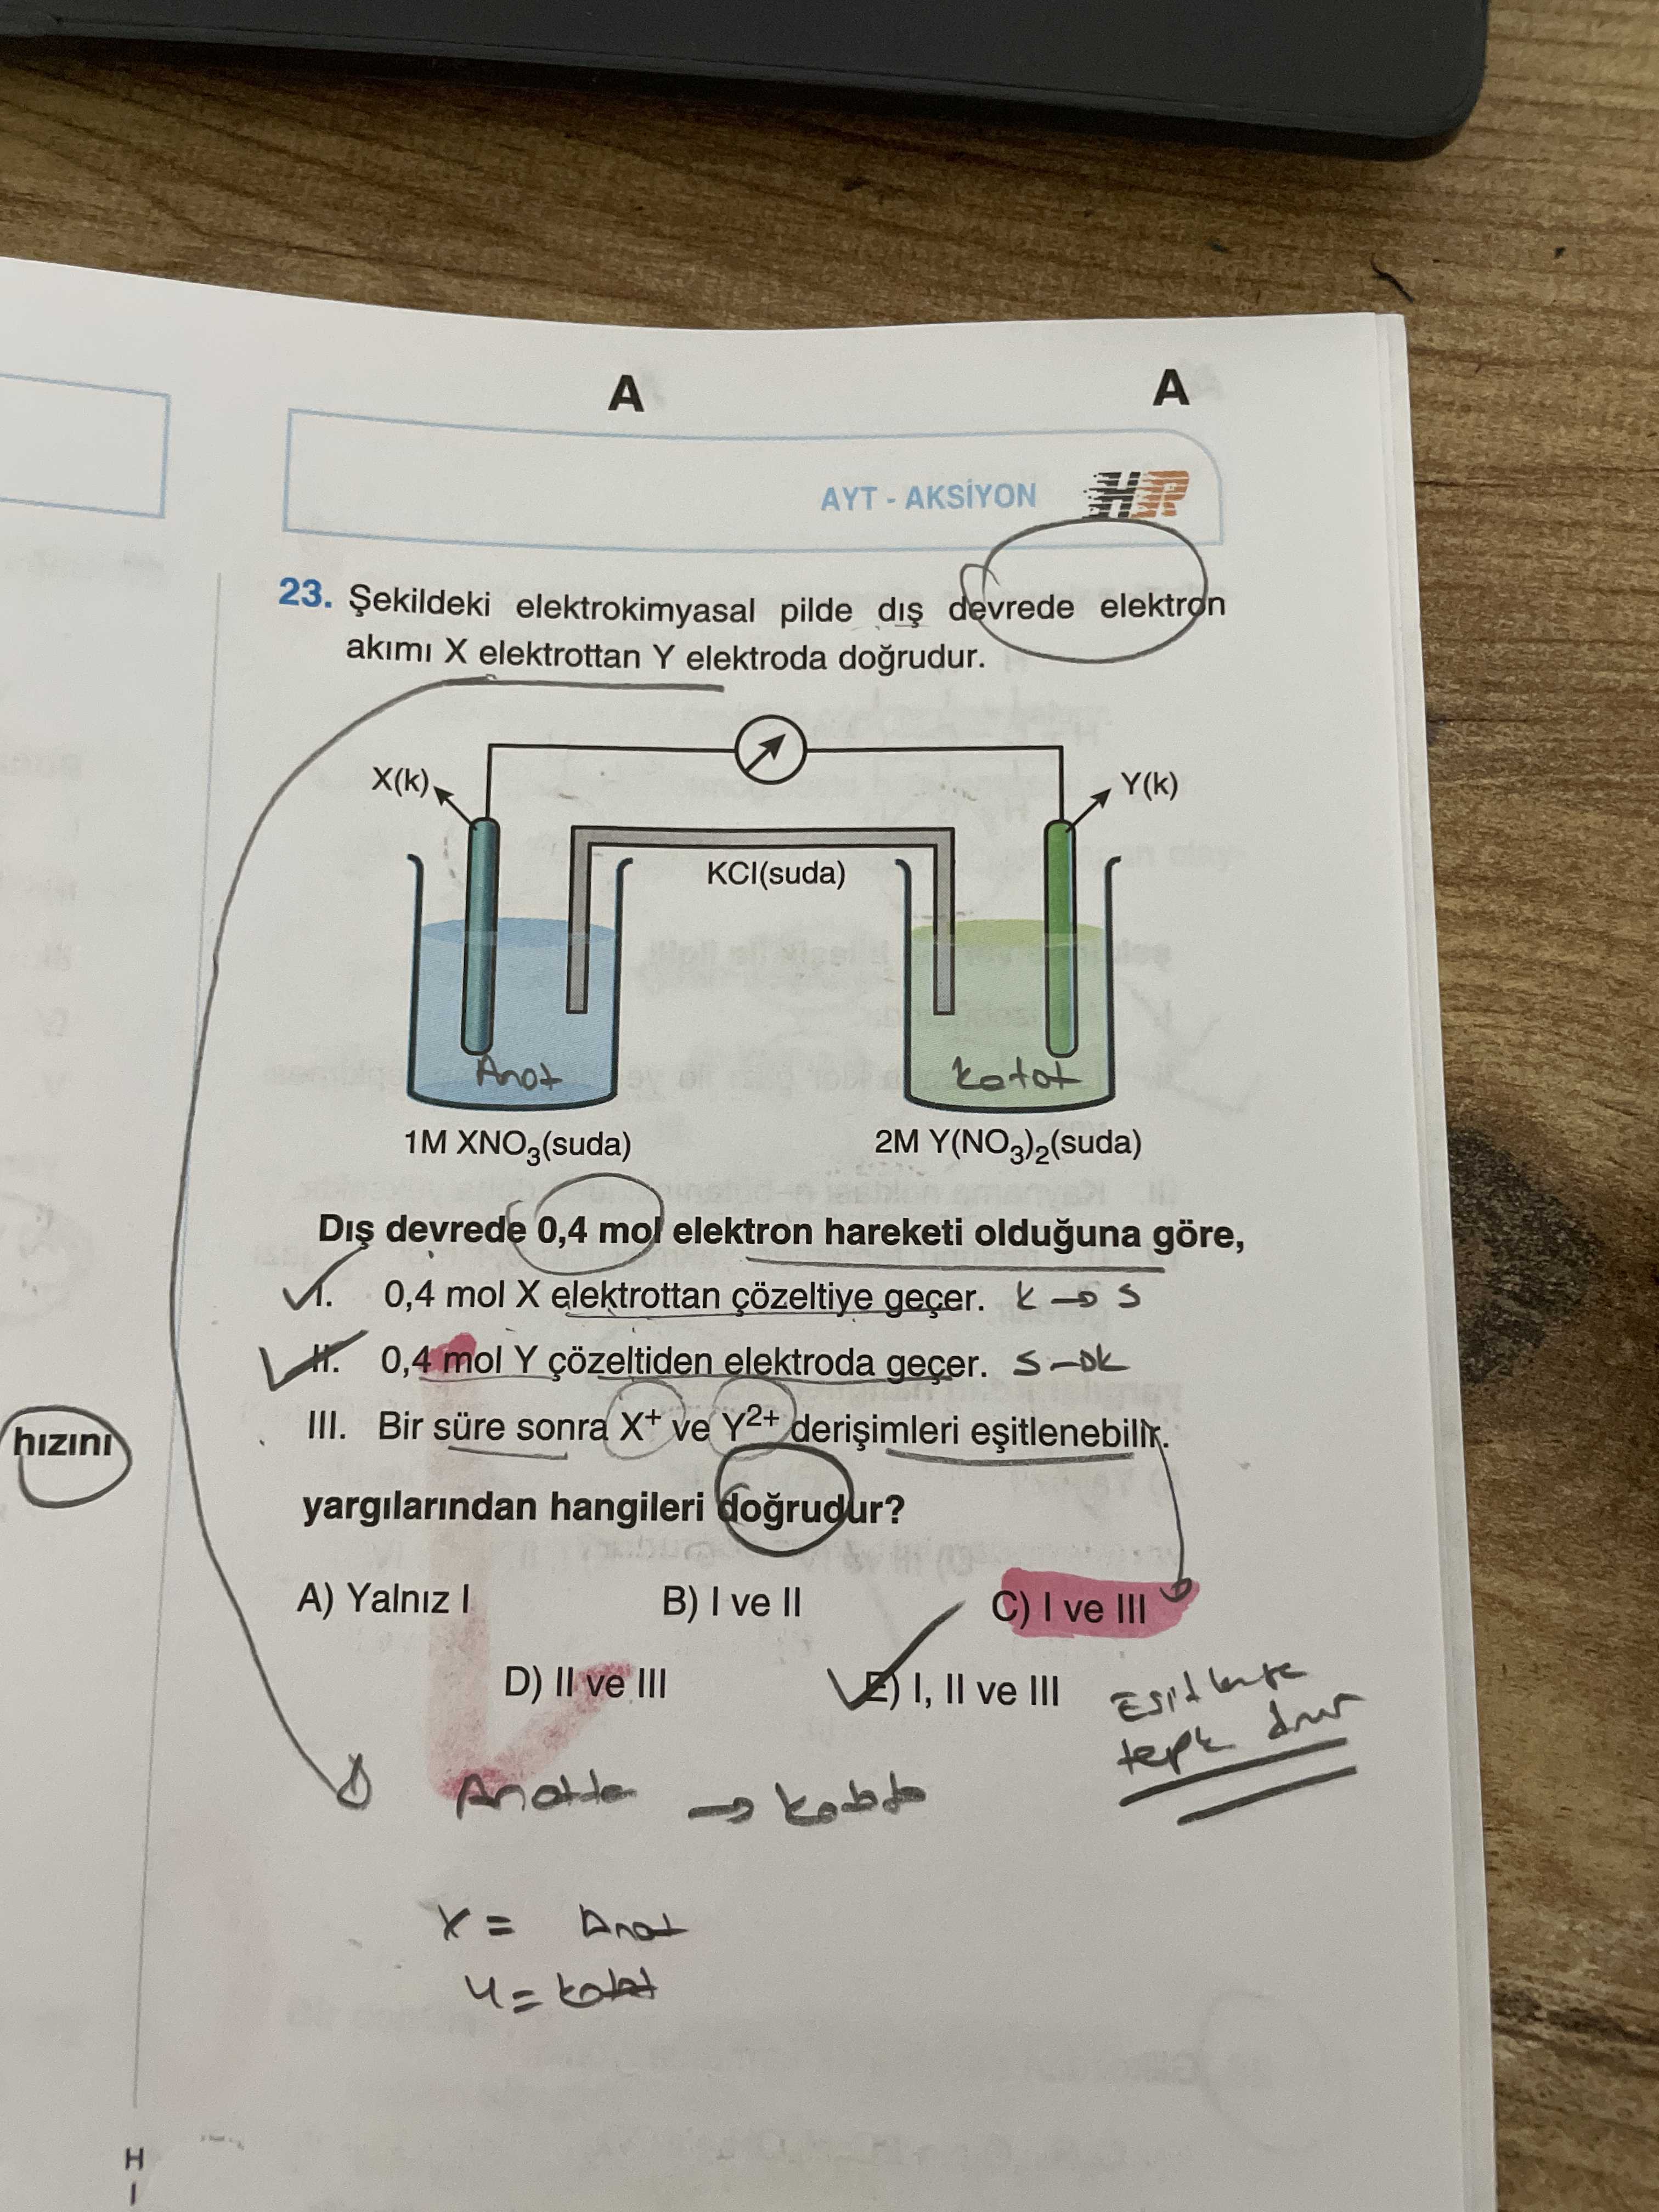 A A
AYT - AKSİYON HR
23. Şekildeki elektrokimyasal pilde dış devrede elektron
akımı X elektrottan Y elektroda doğrudur.
X(k) Y(k)
KCl(suda)
Anot Katot
1M XNO₃(suda) 2M Y(NO₃)₂(suda)
Dış devrede 0,4 mol elektron hareketi olduğuna göre,
I. 0,4 mol X elektrottan çözeltiye geçer. K → S
II. 0,4 mol Y çözeltiden elektroda geçer. S → K
III. Bir süre sonra X⁺ ve Y²⁺ derişimleri eşitlenebilir.
hızını
yargılarından hangileri doğrudur?
A) Yalnız I B) I ve II C) I ve III
D) II ve III E) I, II ve III
tepk
→
X = Anot
Y = katot
H